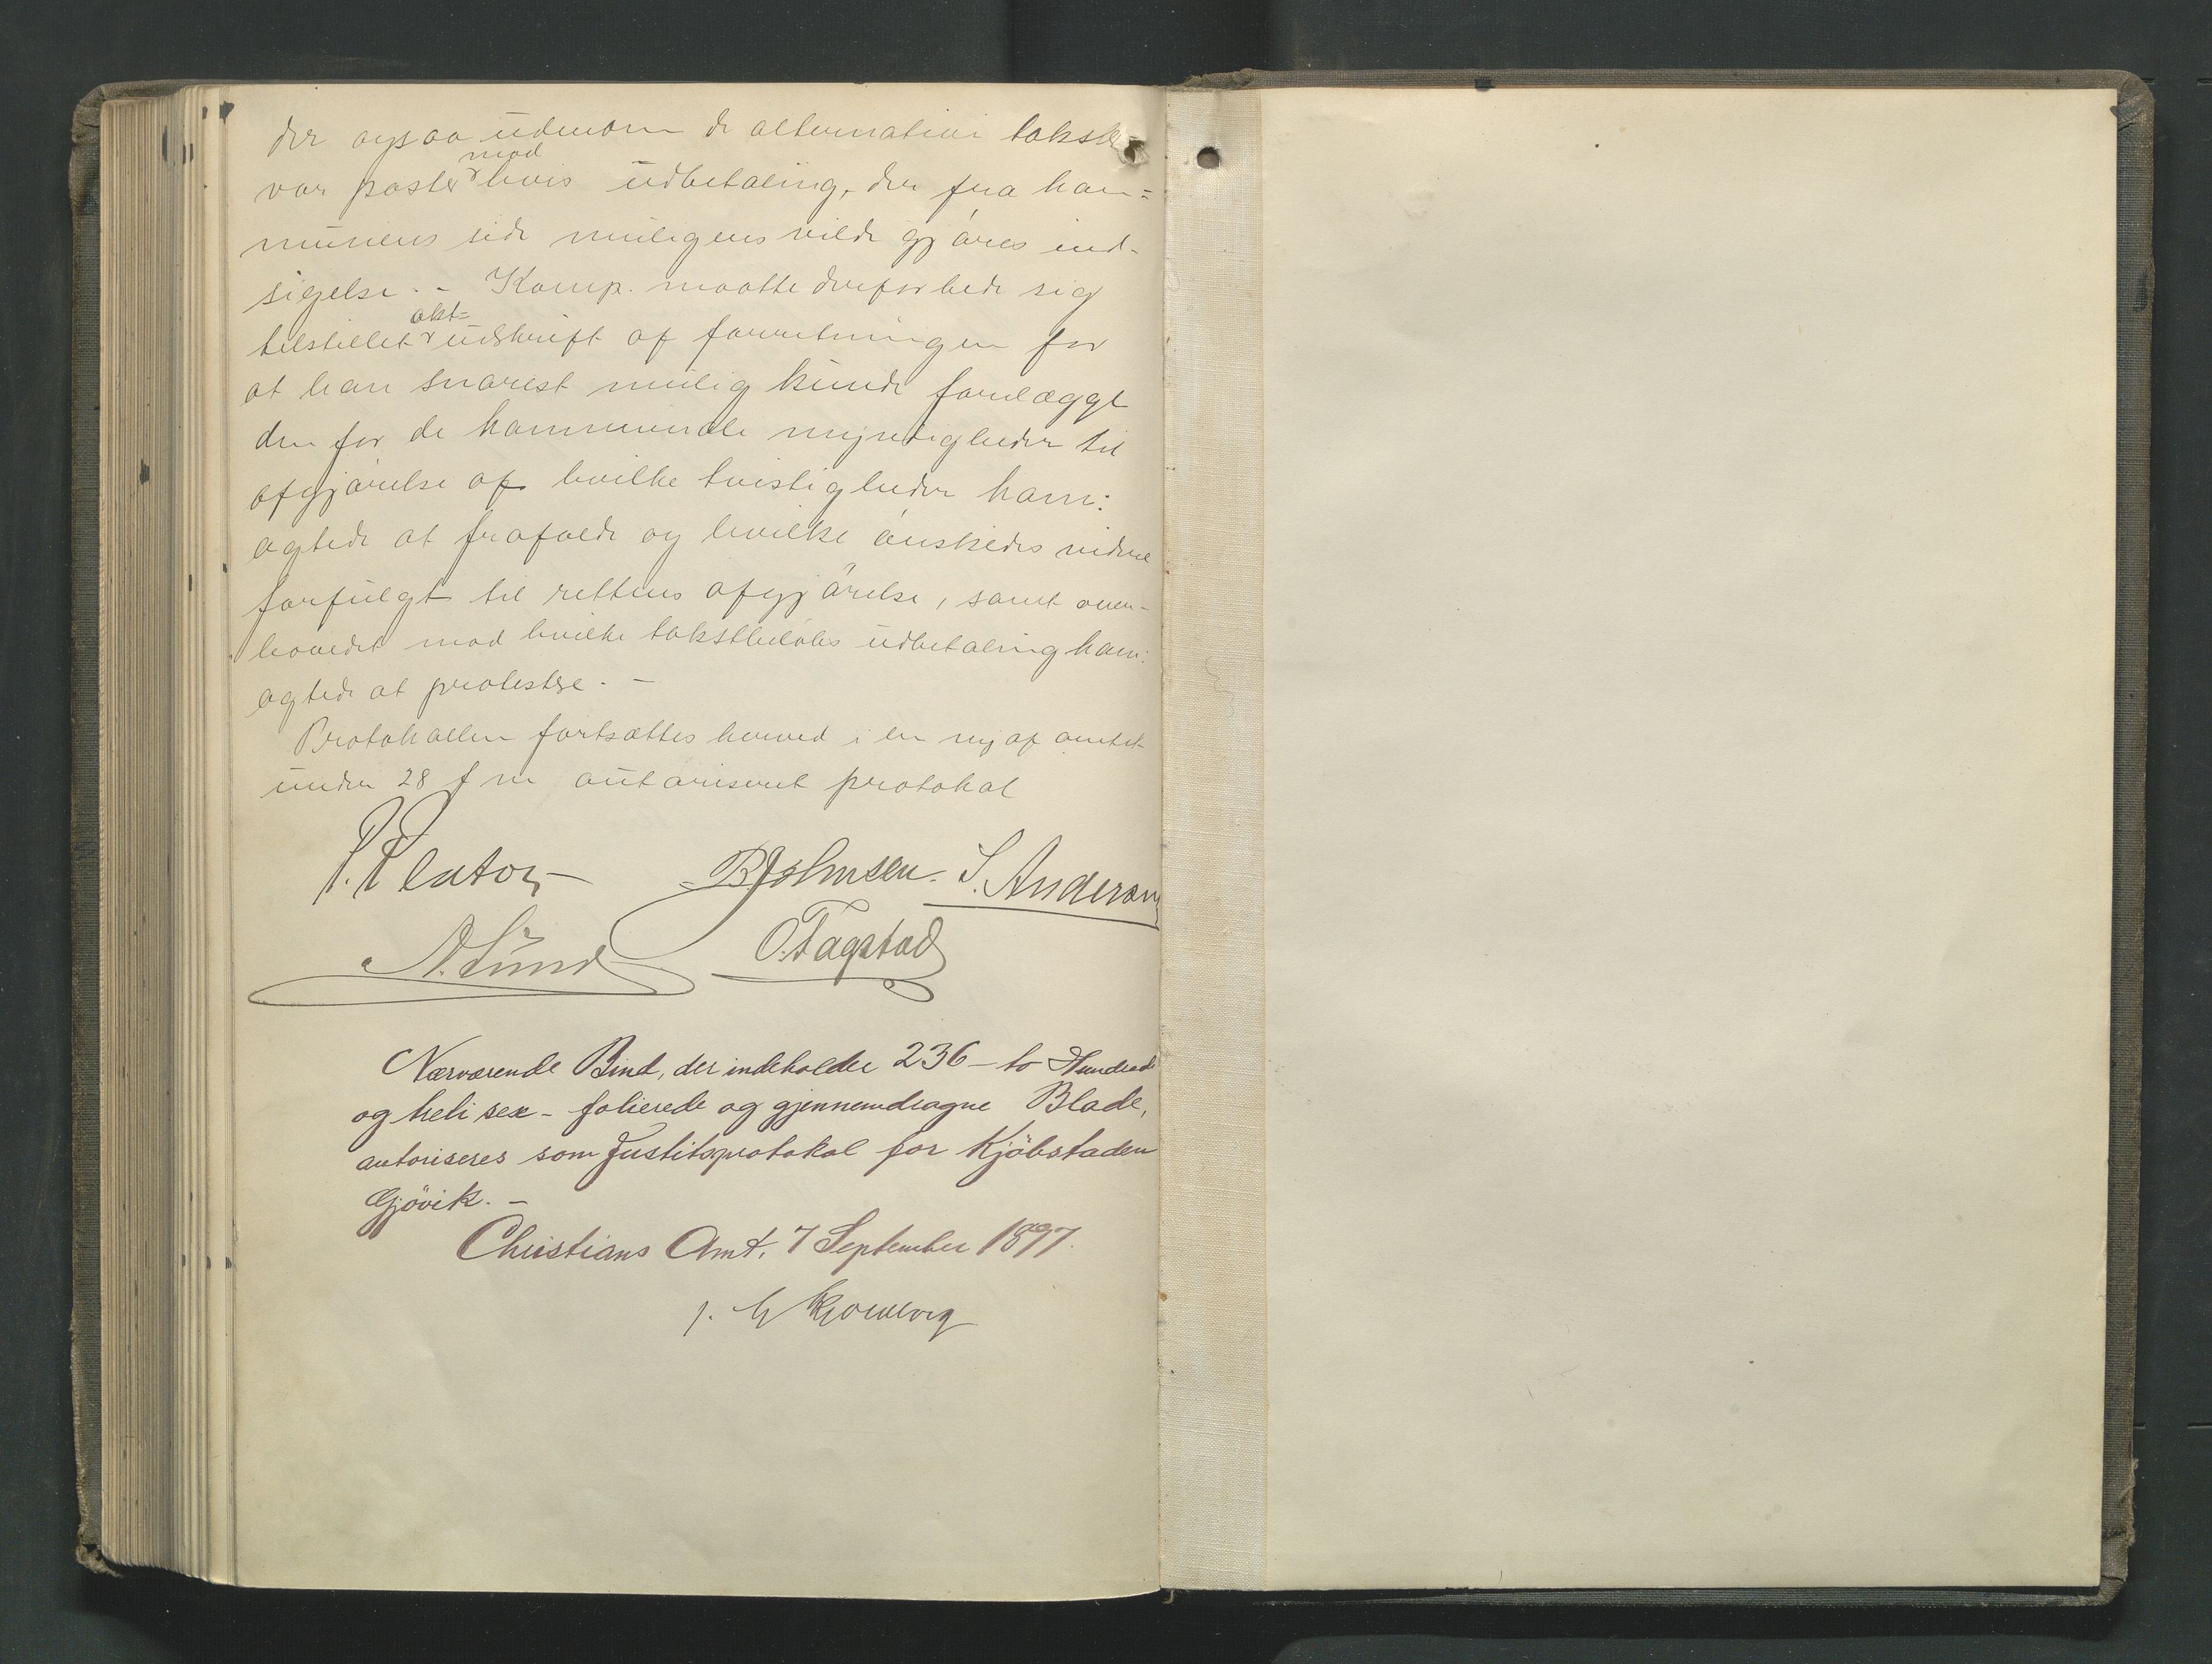 der ogsaa udenom de alternative takster
var poster mod hvis udbetaling, der fra kom=
munens side muligens vilde gjøres ind-
sigelse. - Komp. maatte derfor bede sig
tilstillet akt= udskrift af forretningen for
at han snarest mulig kunde forelægge
den for de kommunale myndigheder til
afgjørelse af hvilke tvistigheder kom:
agtede at frafalde og hvilke ønskedes videre
forfulgt til rettens afgjørelse, samt oven-
hovedet mod hvilke takstbeløbs udbetaling kom:
agtede at protestere. -
Protokollen fortsættes herved i en ny af amtet
under 28 f m autoriseret protokol
P. Platou B Johnsen. S. Anderson
A. Lund O. Fagstad
Nærværende Bind, der indeholder 236 - to Hundrede
og treti sex - folierede og gjennemdragne Blade,
autoriseres som Justitsprotokol for Kjöbstaden
Gjövik. -
Christians Amt, 7 September 1897.